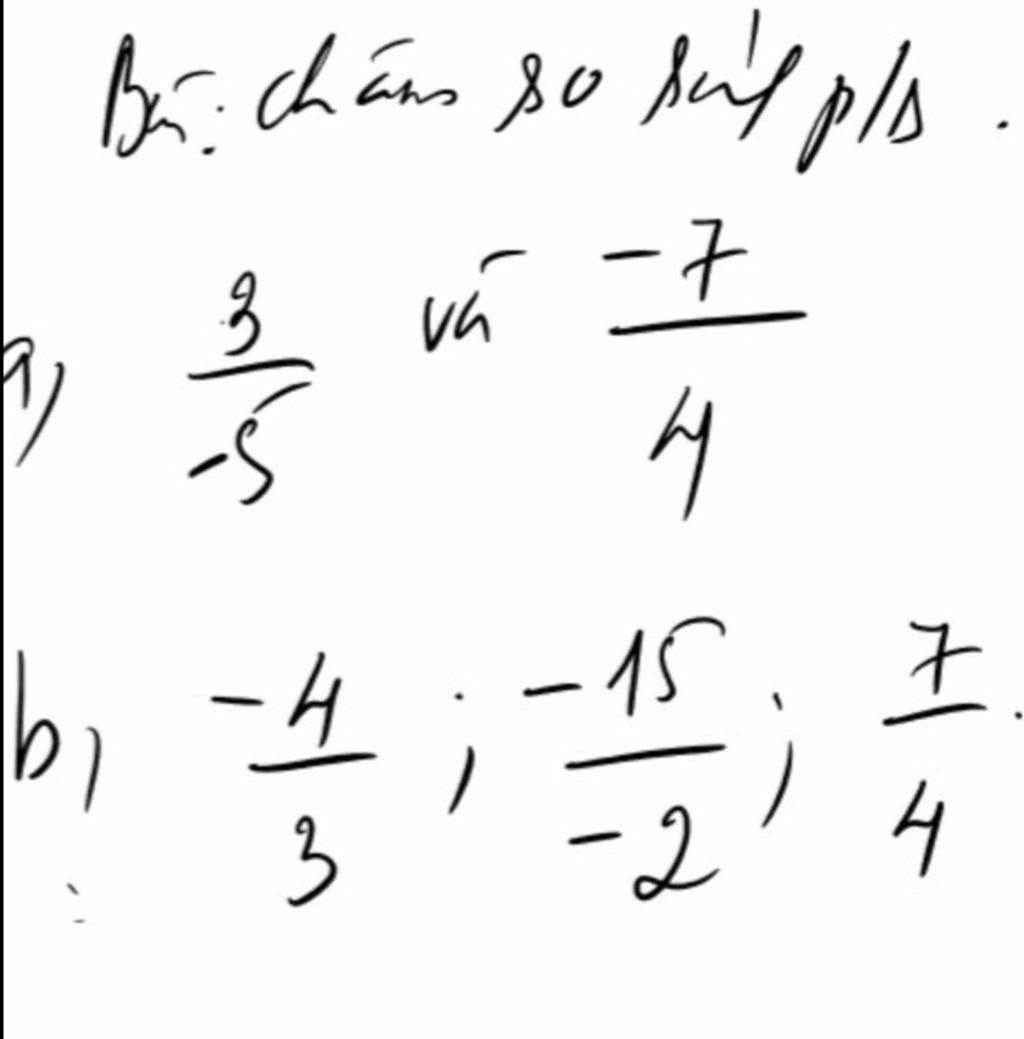 Bài: chấm so sánh p/s.
a, 3/-5 và -7/4
b, -4/3 ; -15/-2 ; 7/4.